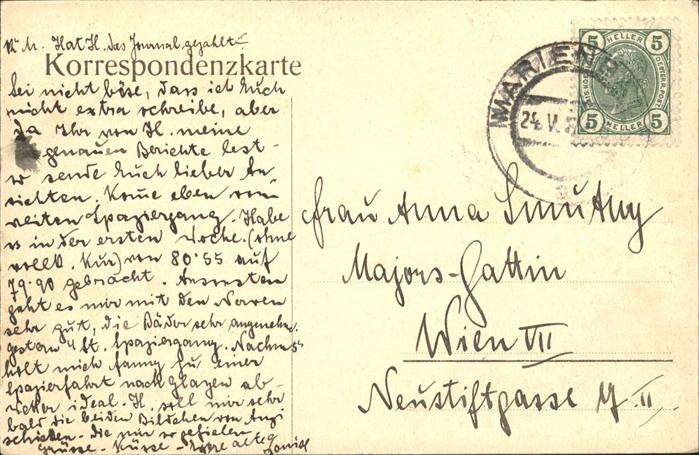 H. M. Hat H. das Journal gezahlt
Korrespondenzkarte
Sei nicht böse, dass ich Euch
nicht extra schreibe, aber
da Ihr von H. meine
genauen Berichte lest
sende Euch lieber An-
sichten. Kome eben vom
weiten Spaziergang. Habe
in der ersten Woche (ohne
voll. Kur) von 80·55 auf
79·90 gebracht. Ansonsten
geht es mir mit den Nerven
sehr gut, die Bäder sehr angenehm.
gestern 4 St. Spaziergang. Nachm. 5
holt mich Fanny zu einer
Spazierfahrt nach Glazen ab
ideal. H. soll mir sehr
bald die beiden Bildchen von
schicken. die mir so gefielen
Grüsse - Küsse - alte
MARIENBAD
24. V.
5 HELLER 5
5 HELLER 5
Frau Anna Smutny
Majors-Gattin
Wien VII
Neustiftgasse